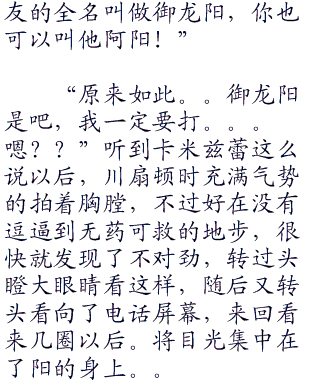 友的全名叫做御龙阳，你也
可以叫他阿阳！”
“原来如此。。御龙阳
是吧，我一定要打。。。
嗯？？”听到卡米兹蕾这么
说以后，川扇顿时充满气势
的拍着胸膛，不过好在没有
逗逼到无药可救的地步，很
快就发现了不对劲，转过头
瞪大眼睛看这样，随后又转
头看向了电话屏幕，来回看
来几圈以后。将目光集中在
了阳的身上。。